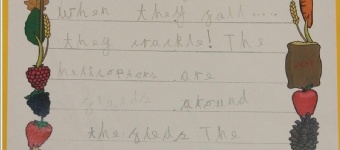 when they fall.....
they crackle! The
helicopters are
around
the fields The